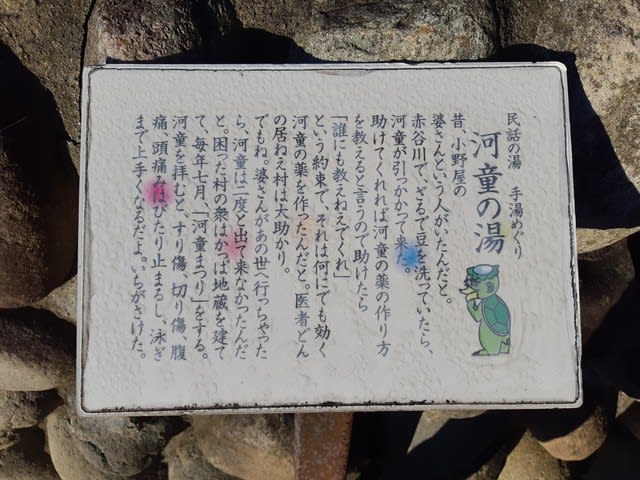 民話の湯　手湯めぐり
河童の湯
昔、小野屋の
婆さんという人がいたんだと。
赤谷川で、ざるで豆を洗っていたら、
河童が引っかかって来た。
助けてくれれば河童の薬の作り方
を教えると言うので助けたら
「誰にも教えねえでくれ」
という約束で、それは何にでも効く
河童の薬を作ったんだと。医者どん
の居ねえ村は大助かり。
でもね。婆さんがあの世へ行っちゃった
ら、河童は二度と出て来なかったんだ
と。困った村の衆はかっぱ地蔵を建て
て、毎年七月、「河童まつり」をする。
河童を拝むと、すり傷、切り傷、腹
痛、頭痛みはぴたり止まるし、泳ぎ
まで上手くなるだよ。いちがさけた。